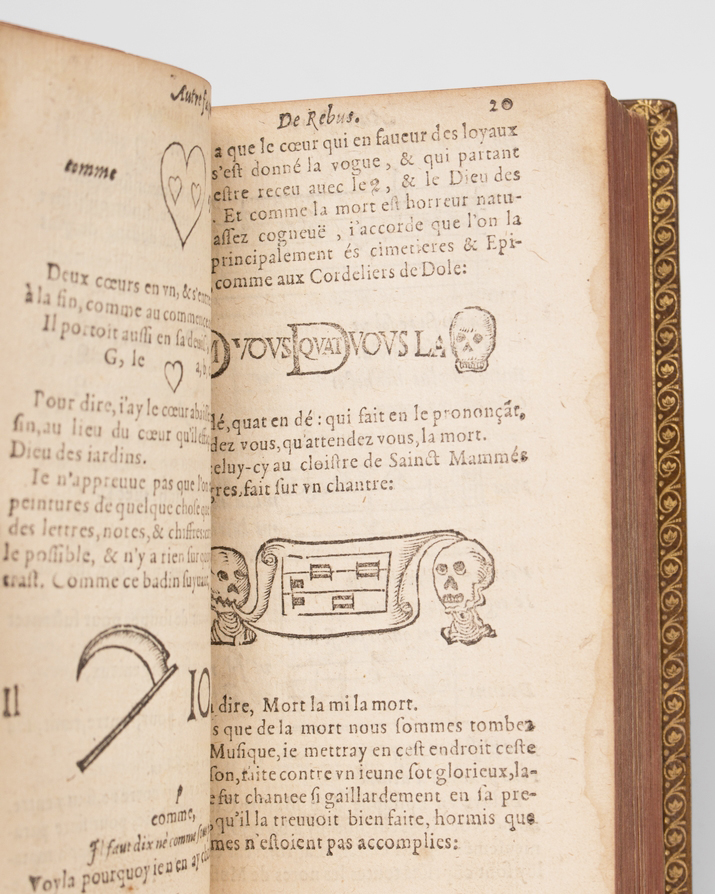 comme
Deux cœurs en vn, & s'en
à la fin, comme au commence
Il portoit aussi en sa deui
G, le
Pour dire, i'ay le cœur
fin, au lieu du cœur qu'il
Dieu des iardins.
Ie n'appreuue pas que l'on
peintures de quelque chose que
des lettres, notes, & chiffres
le possible, & n'y a rien sur
traſt. Comme ce badin suyuant
Il IO
comme,
Il faut dix né comme
Voyla pourquoy ie n en ay
De Rebus. 20
a que le cœur qui en faueur des loyaux
s'est donné la vogue, & qui partant
estre receu auec le 2, & le Dieu des
. Et comme la mort est horreur natu-
assez cogneuë, i'accorde que l'on la
principalement és cimetieres & Epi-
comme aux Cordeliers de Dole:
D VOVS QVAT D VOVS LA
dé, quat en dé: qui fait en le prononçãt,
dez vous, qu'attendez vous, la mort.
eluy-cy au cloistre de Sainct Mammés
gres, fait sur vn chantre:
dire, Mort la mi la mort.
s que de la mort nous sommes tombez
Musique, ie mettray en cest endroit ceste
son, faite contre vn ieune sot glorieux, la-
e fut chantee si gaillardement en sa pre-
qu'il la treuuoit bien faite, hormis que
mes n'estoient pas accomplies: